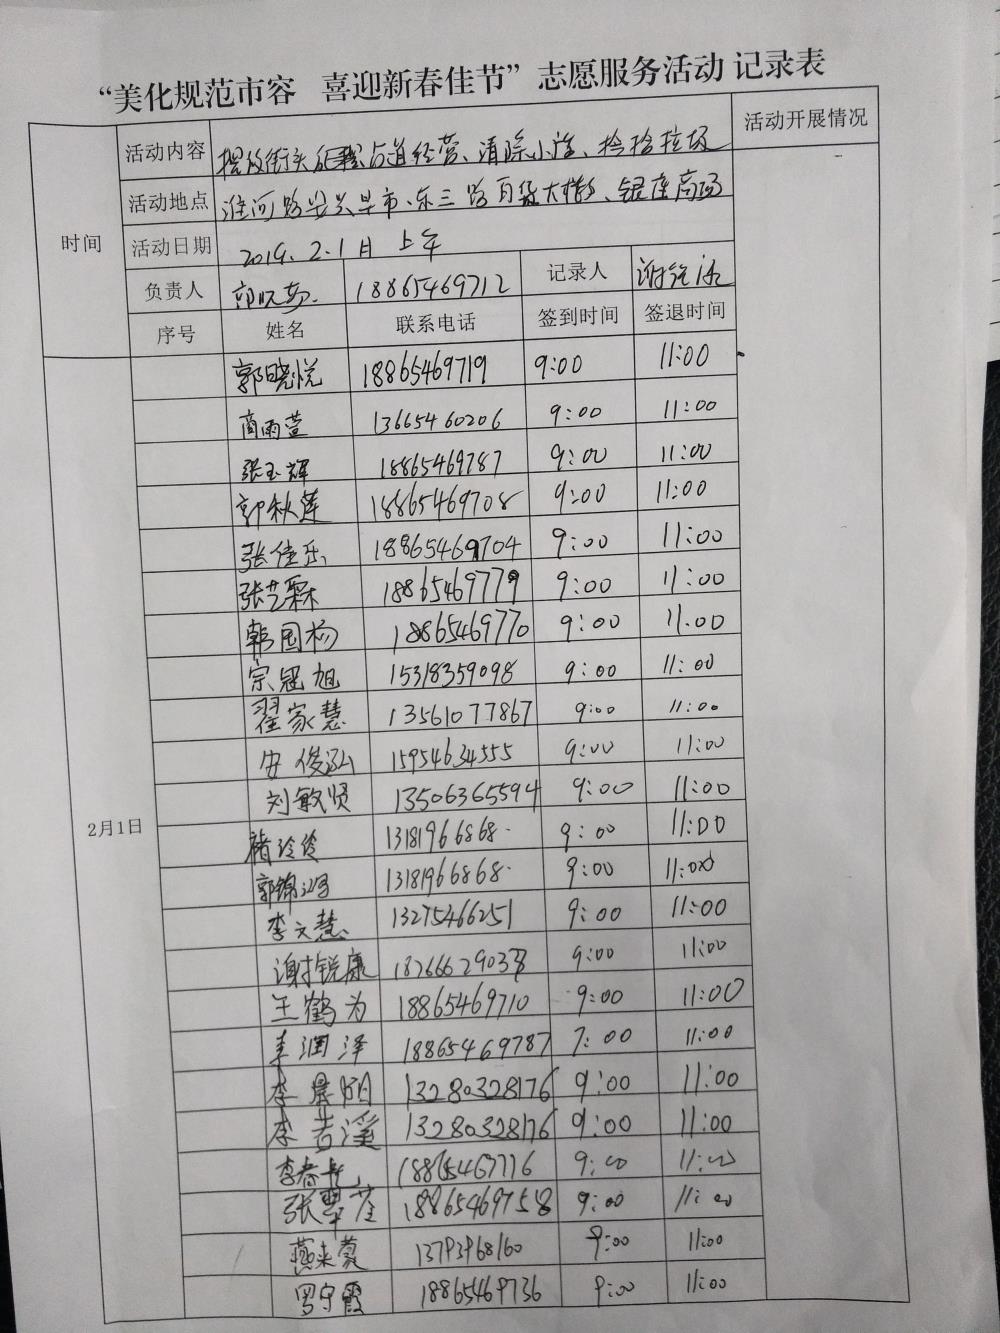 “美化规范市容 喜迎新春佳节”志愿服务活动 记录表
时间 活动内容 摆放街头 占道经营、清除小广、捡拾垃圾 活动开展情况
活动地点 淮河路 早市、东三路百货大楼、银座商场
活动日期 2019.2.1日 上午
负责人 郭晓 18865469712 记录人 谢
序号 姓名 联系电话 签到时间 签退时间
2月1日
郭晓悦 18865469719 9:00 11:00
商雨萱 13665460206 9:00 11:00
张玉辉 18865469787 9:00 11:00
郭秋莲 18865469708 9:00 11:00
张佳乐 18865469704 9:00 11:00
张艺霖 18865469779 9:00 11:00
韩国杨 18865469770 9:00 11:00
宗冠旭 15318359098 9:00 11:00
翟家慧 13561077867 9:00 11:00
安俊泓 15954634555 9:00 11:00
刘敏贤 13506365594 9:00 11:00
褚玲玲 13181966868 9:00 11:00
郭锦鸿 13181966868 9:00 11:00
李文慧 13275466251 9:00 11:00
谢锐康 18266629038 9:00 11:00
王鹤为 18865469710 9:00 11:00
李润泽 18865469787 7:00 11:00
李景阳 13280328176 9:00 11:00
李若溪 13280328176 9:00 11:00
李春 18865467716 9:00 11:00
张翠 18865469758 9:00 11:00
燕来蒙 13793968160 9:00 11:00
罗守霞 18865469736 9:00 11:00